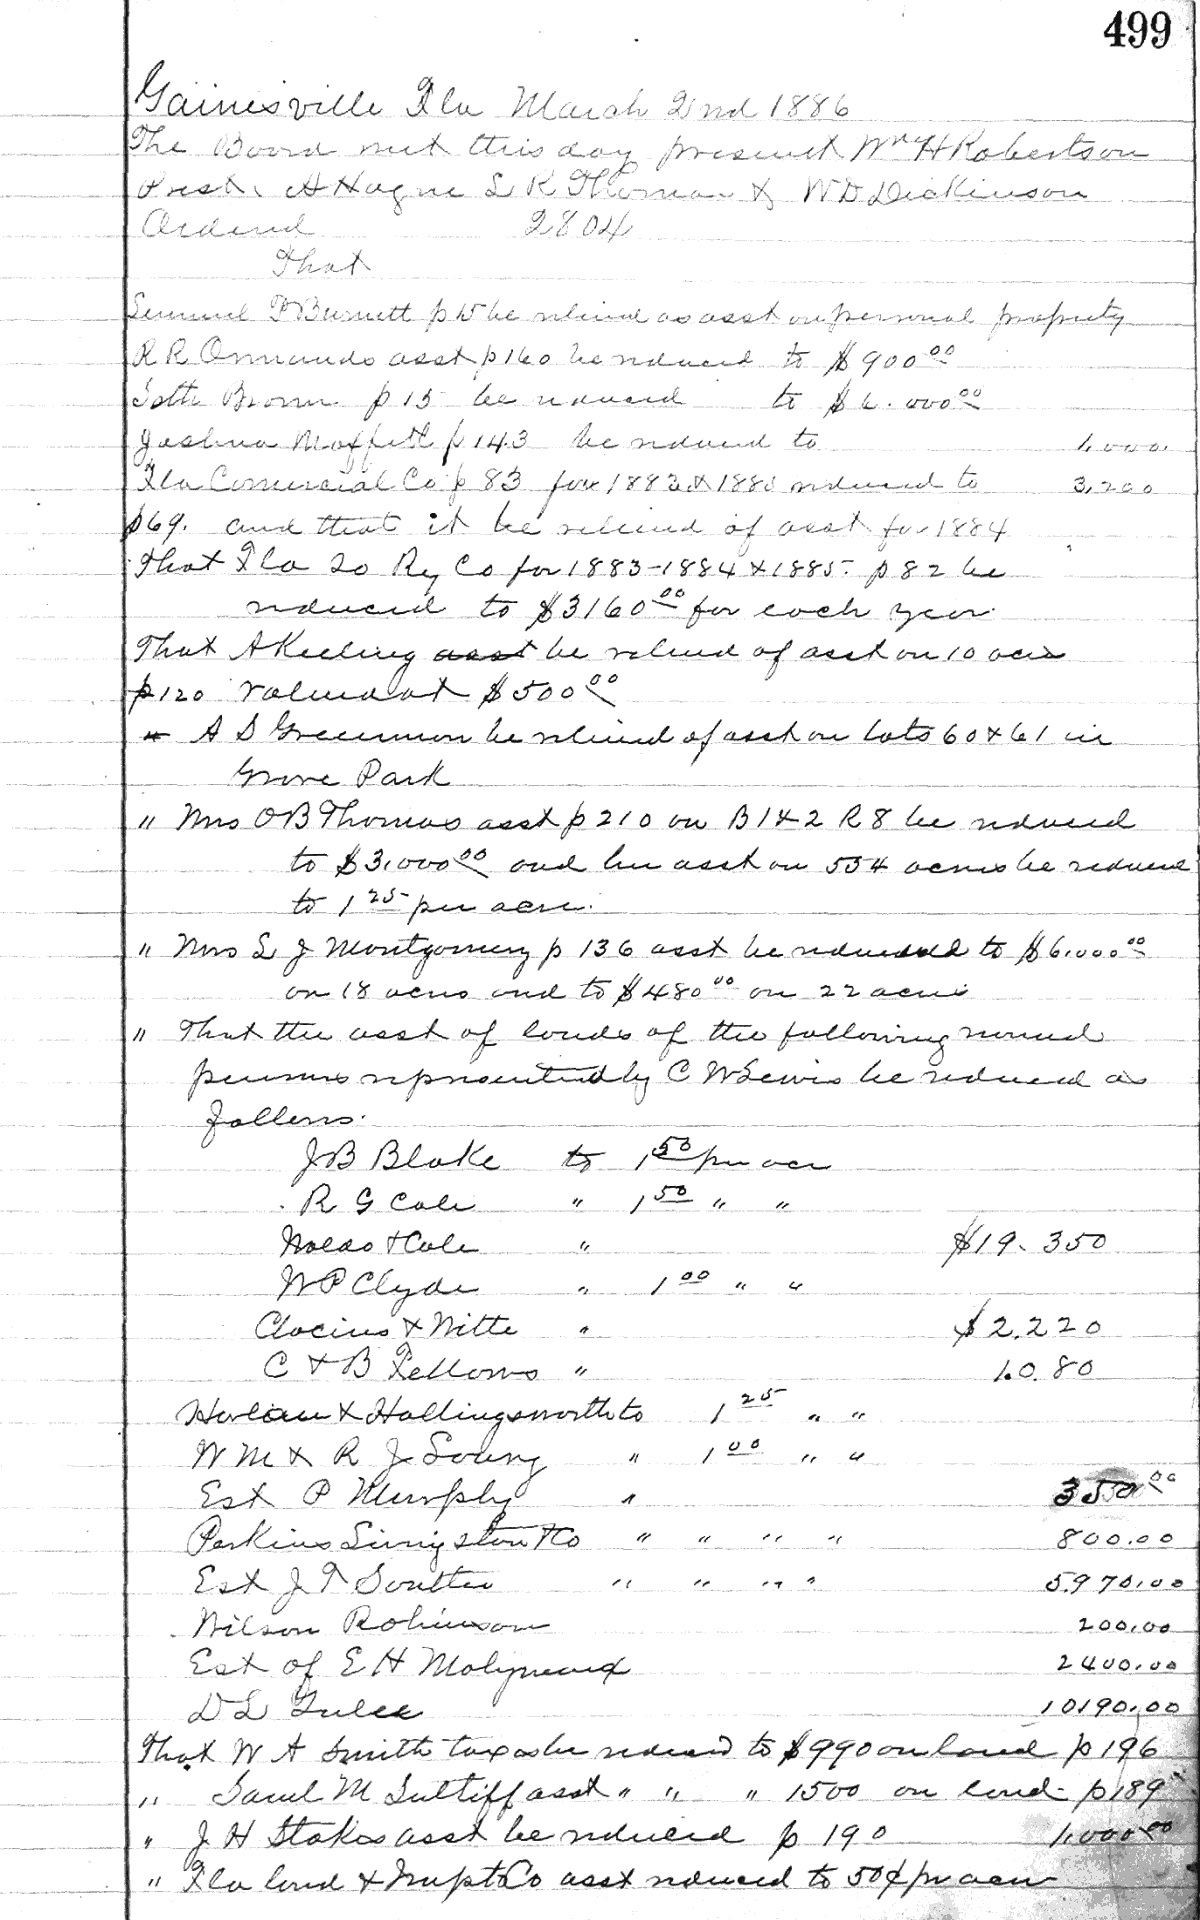 499
Gainesville Fla March 2nd 1886
The Board met this day present Wm H Robertson
Prest. H Hague L K Thomas & W D Dickinson
Ordered 2804
That
Samuel Burnett p 15 be relieved as asst on personal property
R R Ormands asst p 160 be reduced to $900.00
Brown p 15 be reduced to $6.000.00
Joshua Moffett p 143 be reduced to 1,000.
Fla Comercial Co p 83 for 1883 & 1885 reduced to 3,200
$69. and that it be relieved of asst for 1884
That Fla So Ry Co for 1883-1884 & 1885 p 82 be
reduced to $3160.00 for each year.
That A Keeling be relieved of asst on 10 acres
p 120 valued at $500.00
A S be relieved of asst on lots 60 & 61 in
Grove Park
" Mrs O B Thomas asst p 210 on B 1 & 2 R 8 be reduced
to $3,000.00 and her asst on 554 acres be reduced
to 1 25 per acre.
" Mrs L J Montgomery p 136 asst be reduced to $6.000.00
on 18 acres and to $480.00 on 22 acres
" That the asst of lands of the following named
persons represented by C W Lewis be reduced as
follows.
J B Blake to 1 50 per acre
R G Cole " 1 50 " "
& Cole " $19.350
W P Clyde " 1 00 " "
& Witte " $2.220
C & B Fellows " 1.0.80
& Hollingsworth to 1 25 " "
W M & R J Young " 1 00 " "
Est P Murphy " 3550.00
Perkins Livingston & Co " " " " 800.00
Est J T Soutter " " " " 5970.00
Wilson Robinson 200.00
Est of E H Molyneaux 2400.00
D L Yulee 10190.00
That W A Smith taxes be reduced to $990 on land p 196
" Saml M asst " " " 1500 on land p 189
" J H Stokes asst be reduced p 190 1,000.00
" Fla land & Impt Co asst reduced to 50¢ pr acre